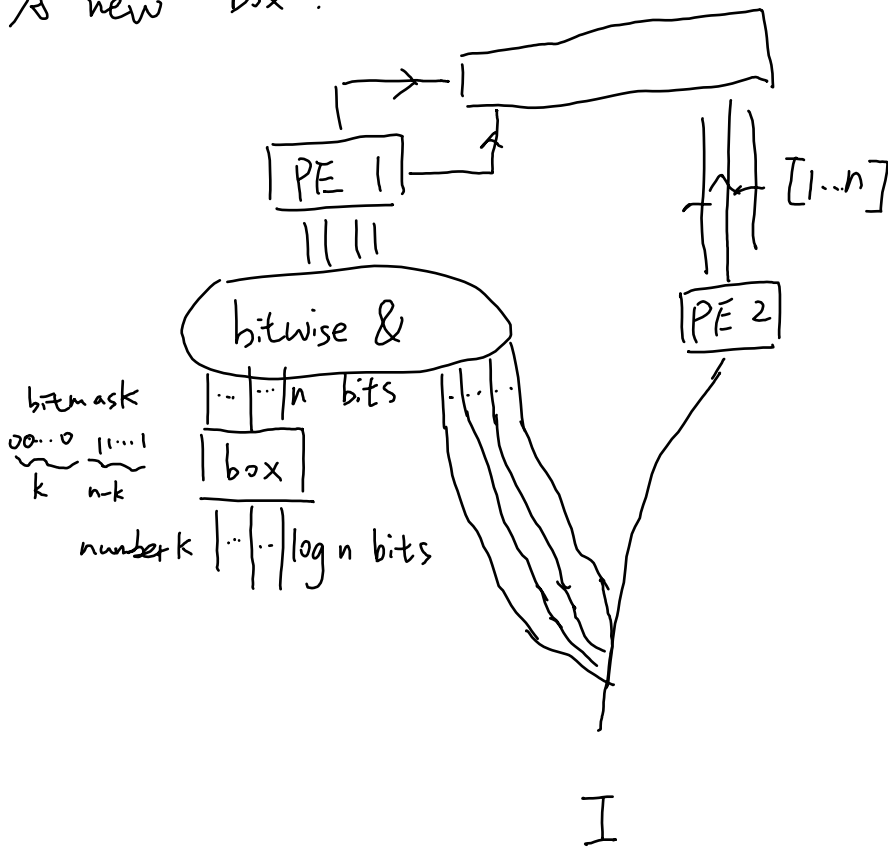 A new box.
PE 1
[1...n]
bitwise &
PE 2
... ... n bits
bitmask
00...0 11....1
k n-k
box
number k ... .. log n bits
I